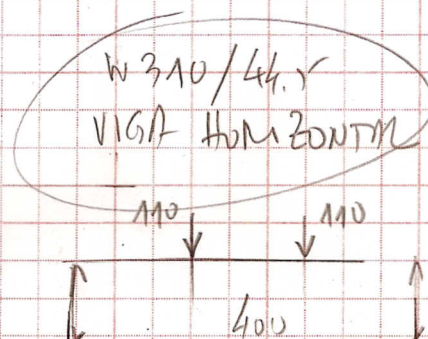 W 310/44.5
VIGA HORIZONTAL
110 110
400